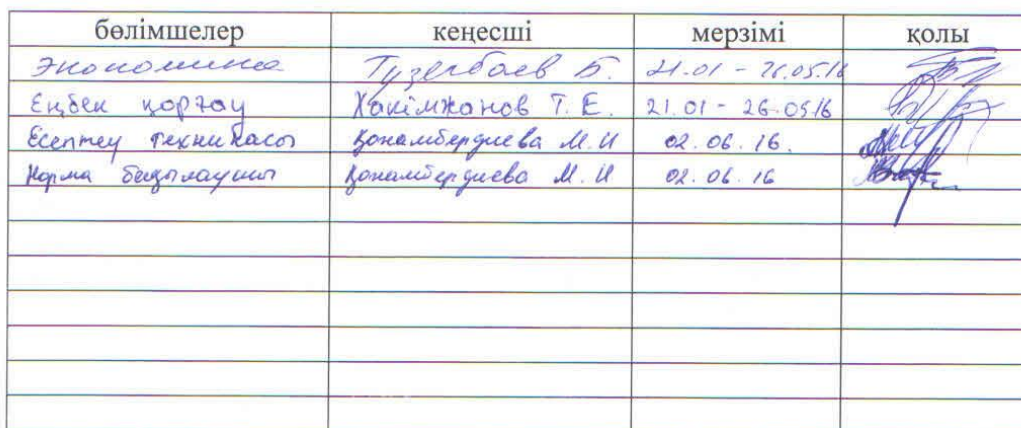 бөлімшелер кеңесші мерзімі қолы
Экономика Тузелбаев Б. 21.01 - 26.05.16
Еңбек қорғау Хакімжанов Т. Е. 21.01 - 26.05.16
Есептеу техникасы Қонамбердиева М. И 02.06.16.
Норма бақылаушы Қонамбердиева М. И 02.06.16